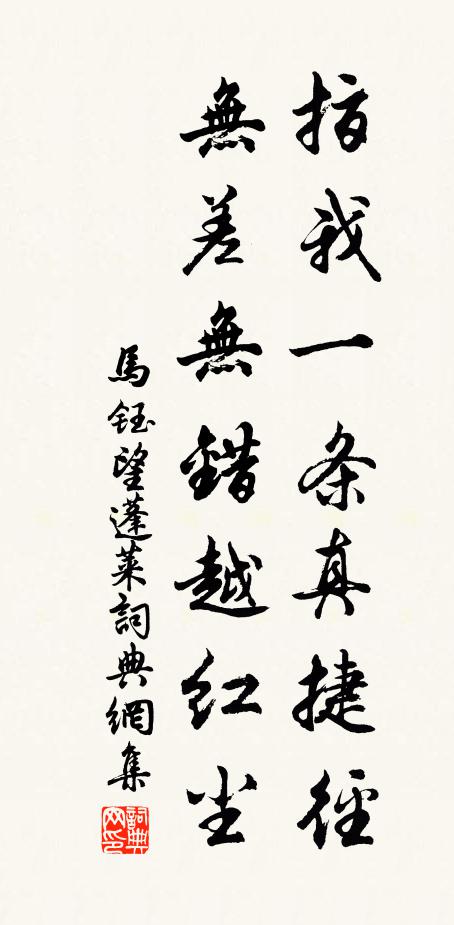 指我一条真捷徑
無差無錯越红尘
馬鈺望蓬萊詞典網集
詞典网印